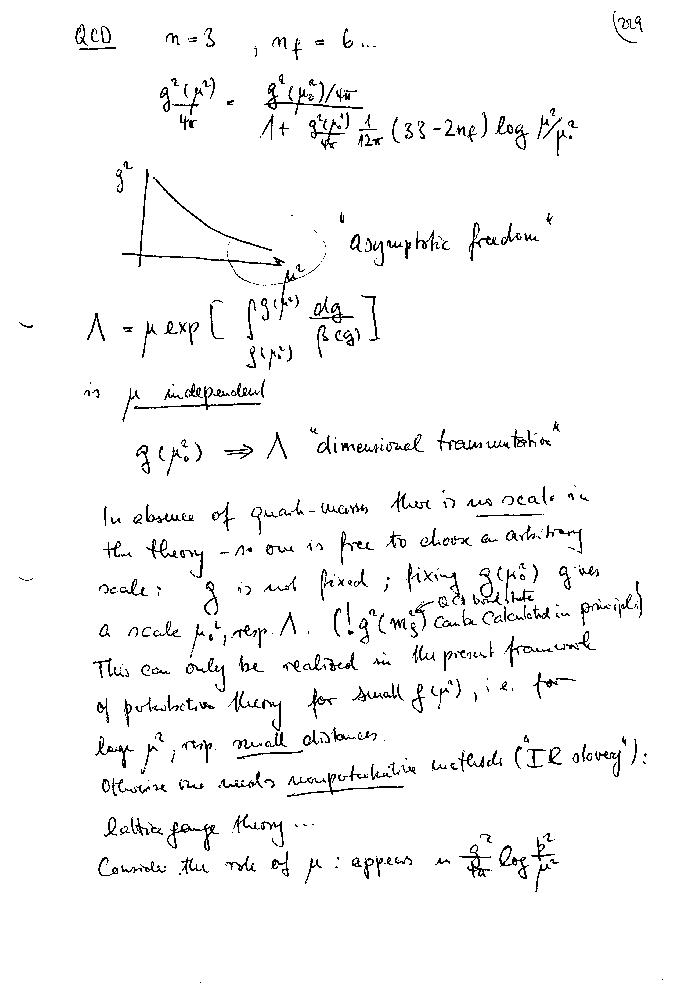 (229
QCD n = 3 , n_f = 6 ...
g²(μ²)/4π = (g²(μ₀²)/4π) / (1 + g²(μ₀²)/4π 1/12π (33 - 2n_f) log μ²/μ₀²)
g²
μ²
"asymptotic freedom"
Λ = μ exp [ ∫_{g(μ₀²)}^{g(μ²)} dg/β(g) ]
is μ independent
g(μ₀²) ⇒ Λ "dimensional transmutation"
In absence of quark-masses there is no scale in
the theory - so one is free to choose an arbitrary
scale: g is not fixed ; fixing g(μ₀²) gives
QCD bound state
a scale μ₀², resp. Λ. (! g²(m_g²) can be calculated in principle!)
This can only be realized in the present framework
of perturbative theory for small g(μ²), i.e. for
large μ², resp. small distances.
Otherwise one needs nonperturbative methods ("IR slavery"):
lattice gauge theory ...
Consider the role of μ : appears in g²/4π log p²/μ²